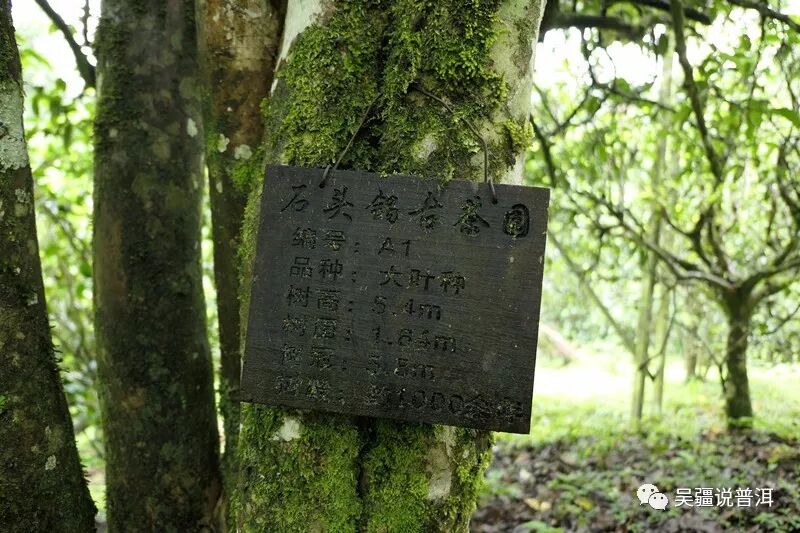 石头锅古茶园
编号：A1
品种：大叶种
树高：5.4m
树围：1.84m
树冠：5.8m
树龄：约1000余年
吴疆说普洱